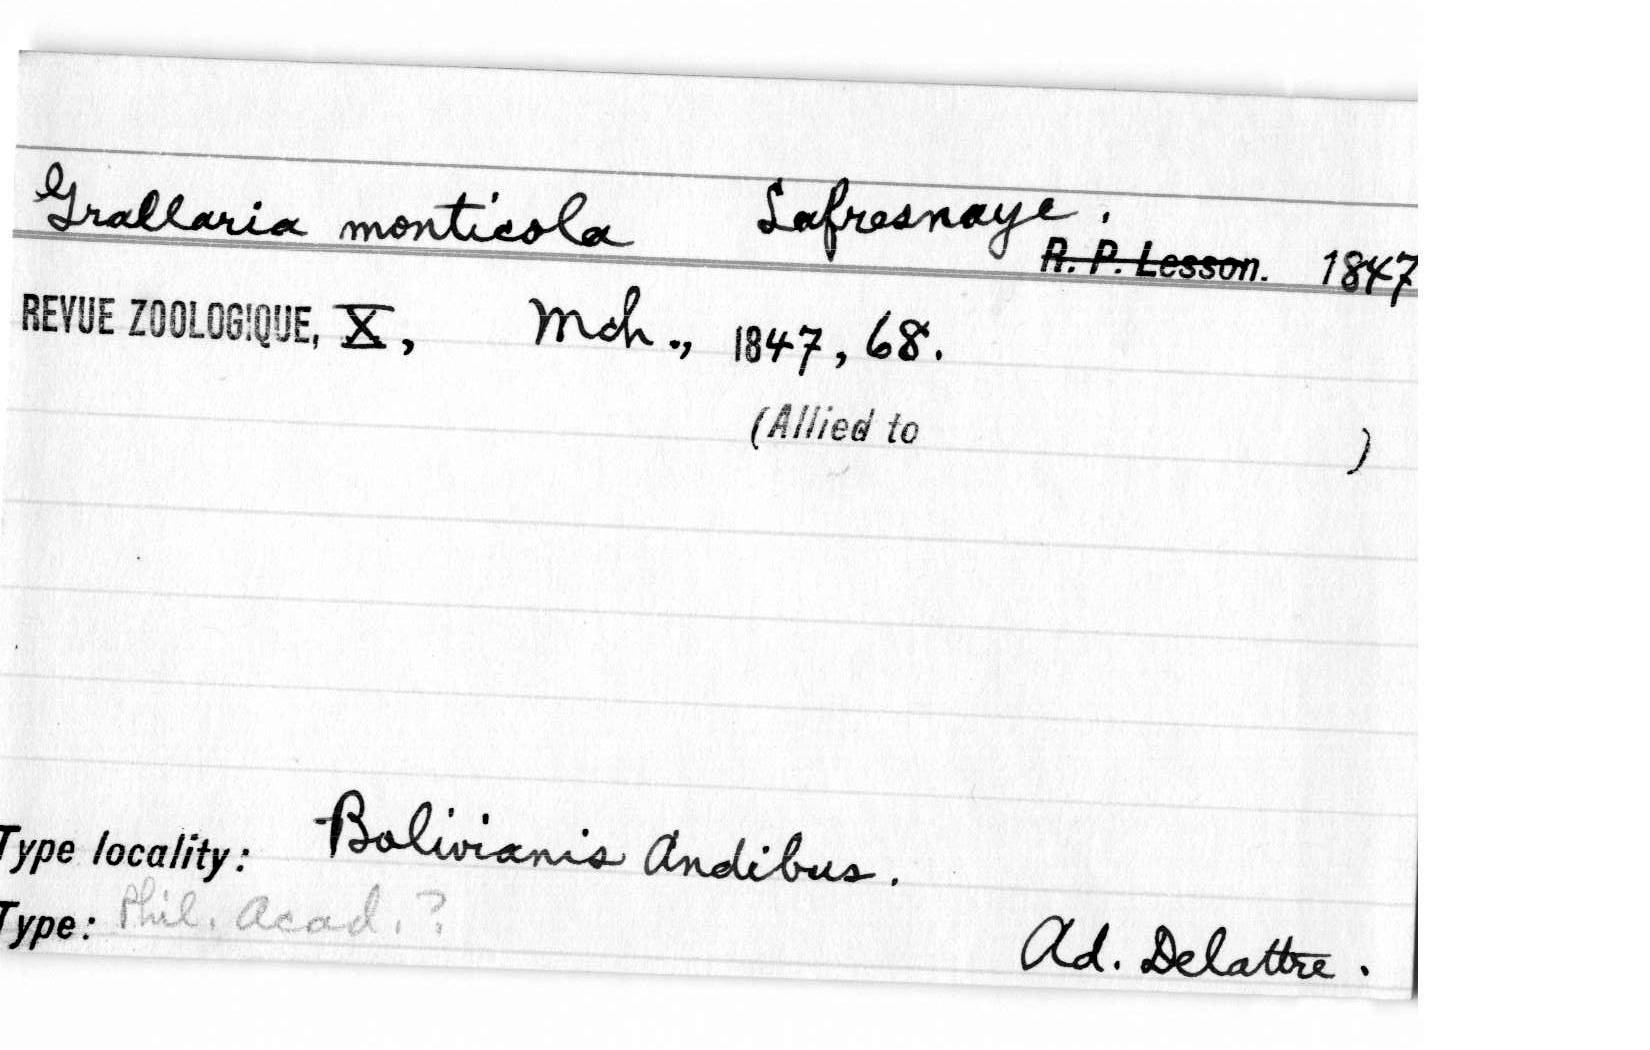 Grallaria monticola Lafresnaye.
R. P. Lesson. 1847
REVUE ZOOLOGIQUE, X, Mch., 1847, 68.
(Allied to )
Type locality: Bolivianis Andibus.
Type: Phil. Acad.?
Ad. Delattre.